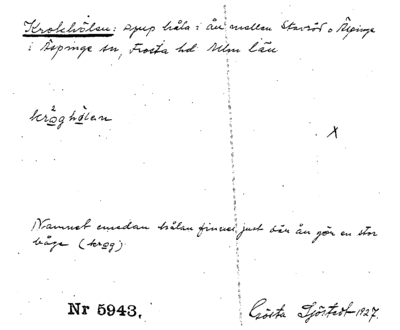 Krokhölen: djup håla i ån mellan Starröd o Äspinge
i Äspinge sn, Frosta hd Mlm län
kråghölan
X
Namnet emedan hålan finnes just där ån gör en stor
båge (krog)
Nr 5943.
Gösta Sjöstedt 1927.